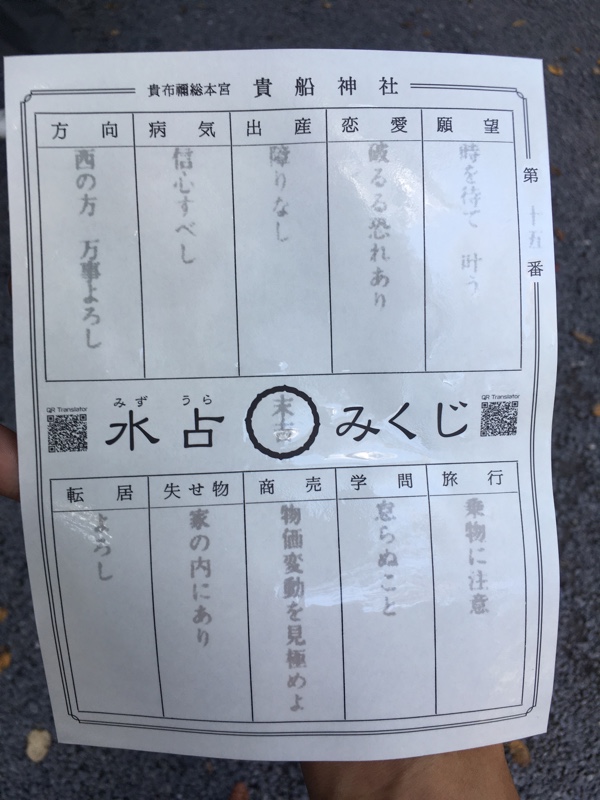 貴布禰総本宮 貴船神社
第十五番
願望
時を待て 叶う
恋愛
破るる恐れあり
出産
障りなし
病気
信心すべし
方向
西の方 万事よろし
QR Translator
みず うら
水占 末吉 みくじ
QR Translator
旅行
乗物に注意
学問
怠らぬこと
商売
物価変動を見極めよ
失せ物
家の内にあり
転居
よろし